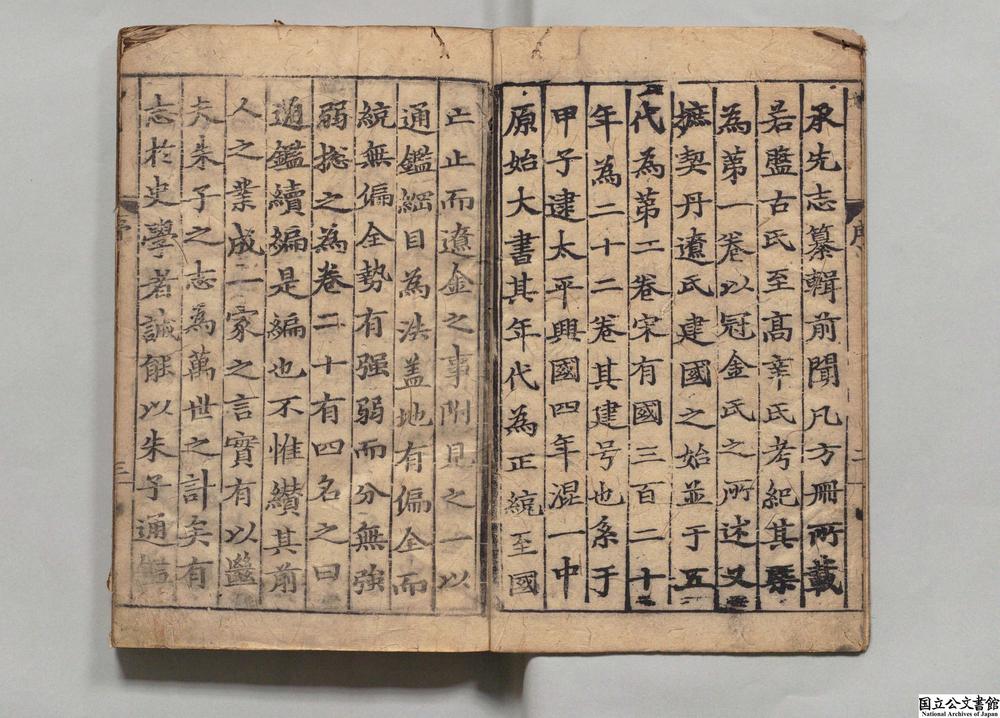 承先志纂輯前聞凡方冊所載
若盤古氏至高辛氏考紀其槩
為第一卷以冠金氏之所述又
摭契丹遼氏建國之始並于五
代為第二卷宋有國三百二十
年為二十二卷其建号也系于
甲子逮太平興國四年混一中
原始大書其年代為正統至國
序
二
止止而遼金之事附見之一以
通鑑綱目為法盖地有偏全而
統無偏全勢有强弱而分無強
弱揔之為卷二十有四名之曰
通鑑續編是編也不惟纉其前
人之業成一家之言實有以繼
夫朱子之志為萬世之計矣有
志於史學者誠能以朱子通鑑
序
三
国立公文書館
National Archives of Japan